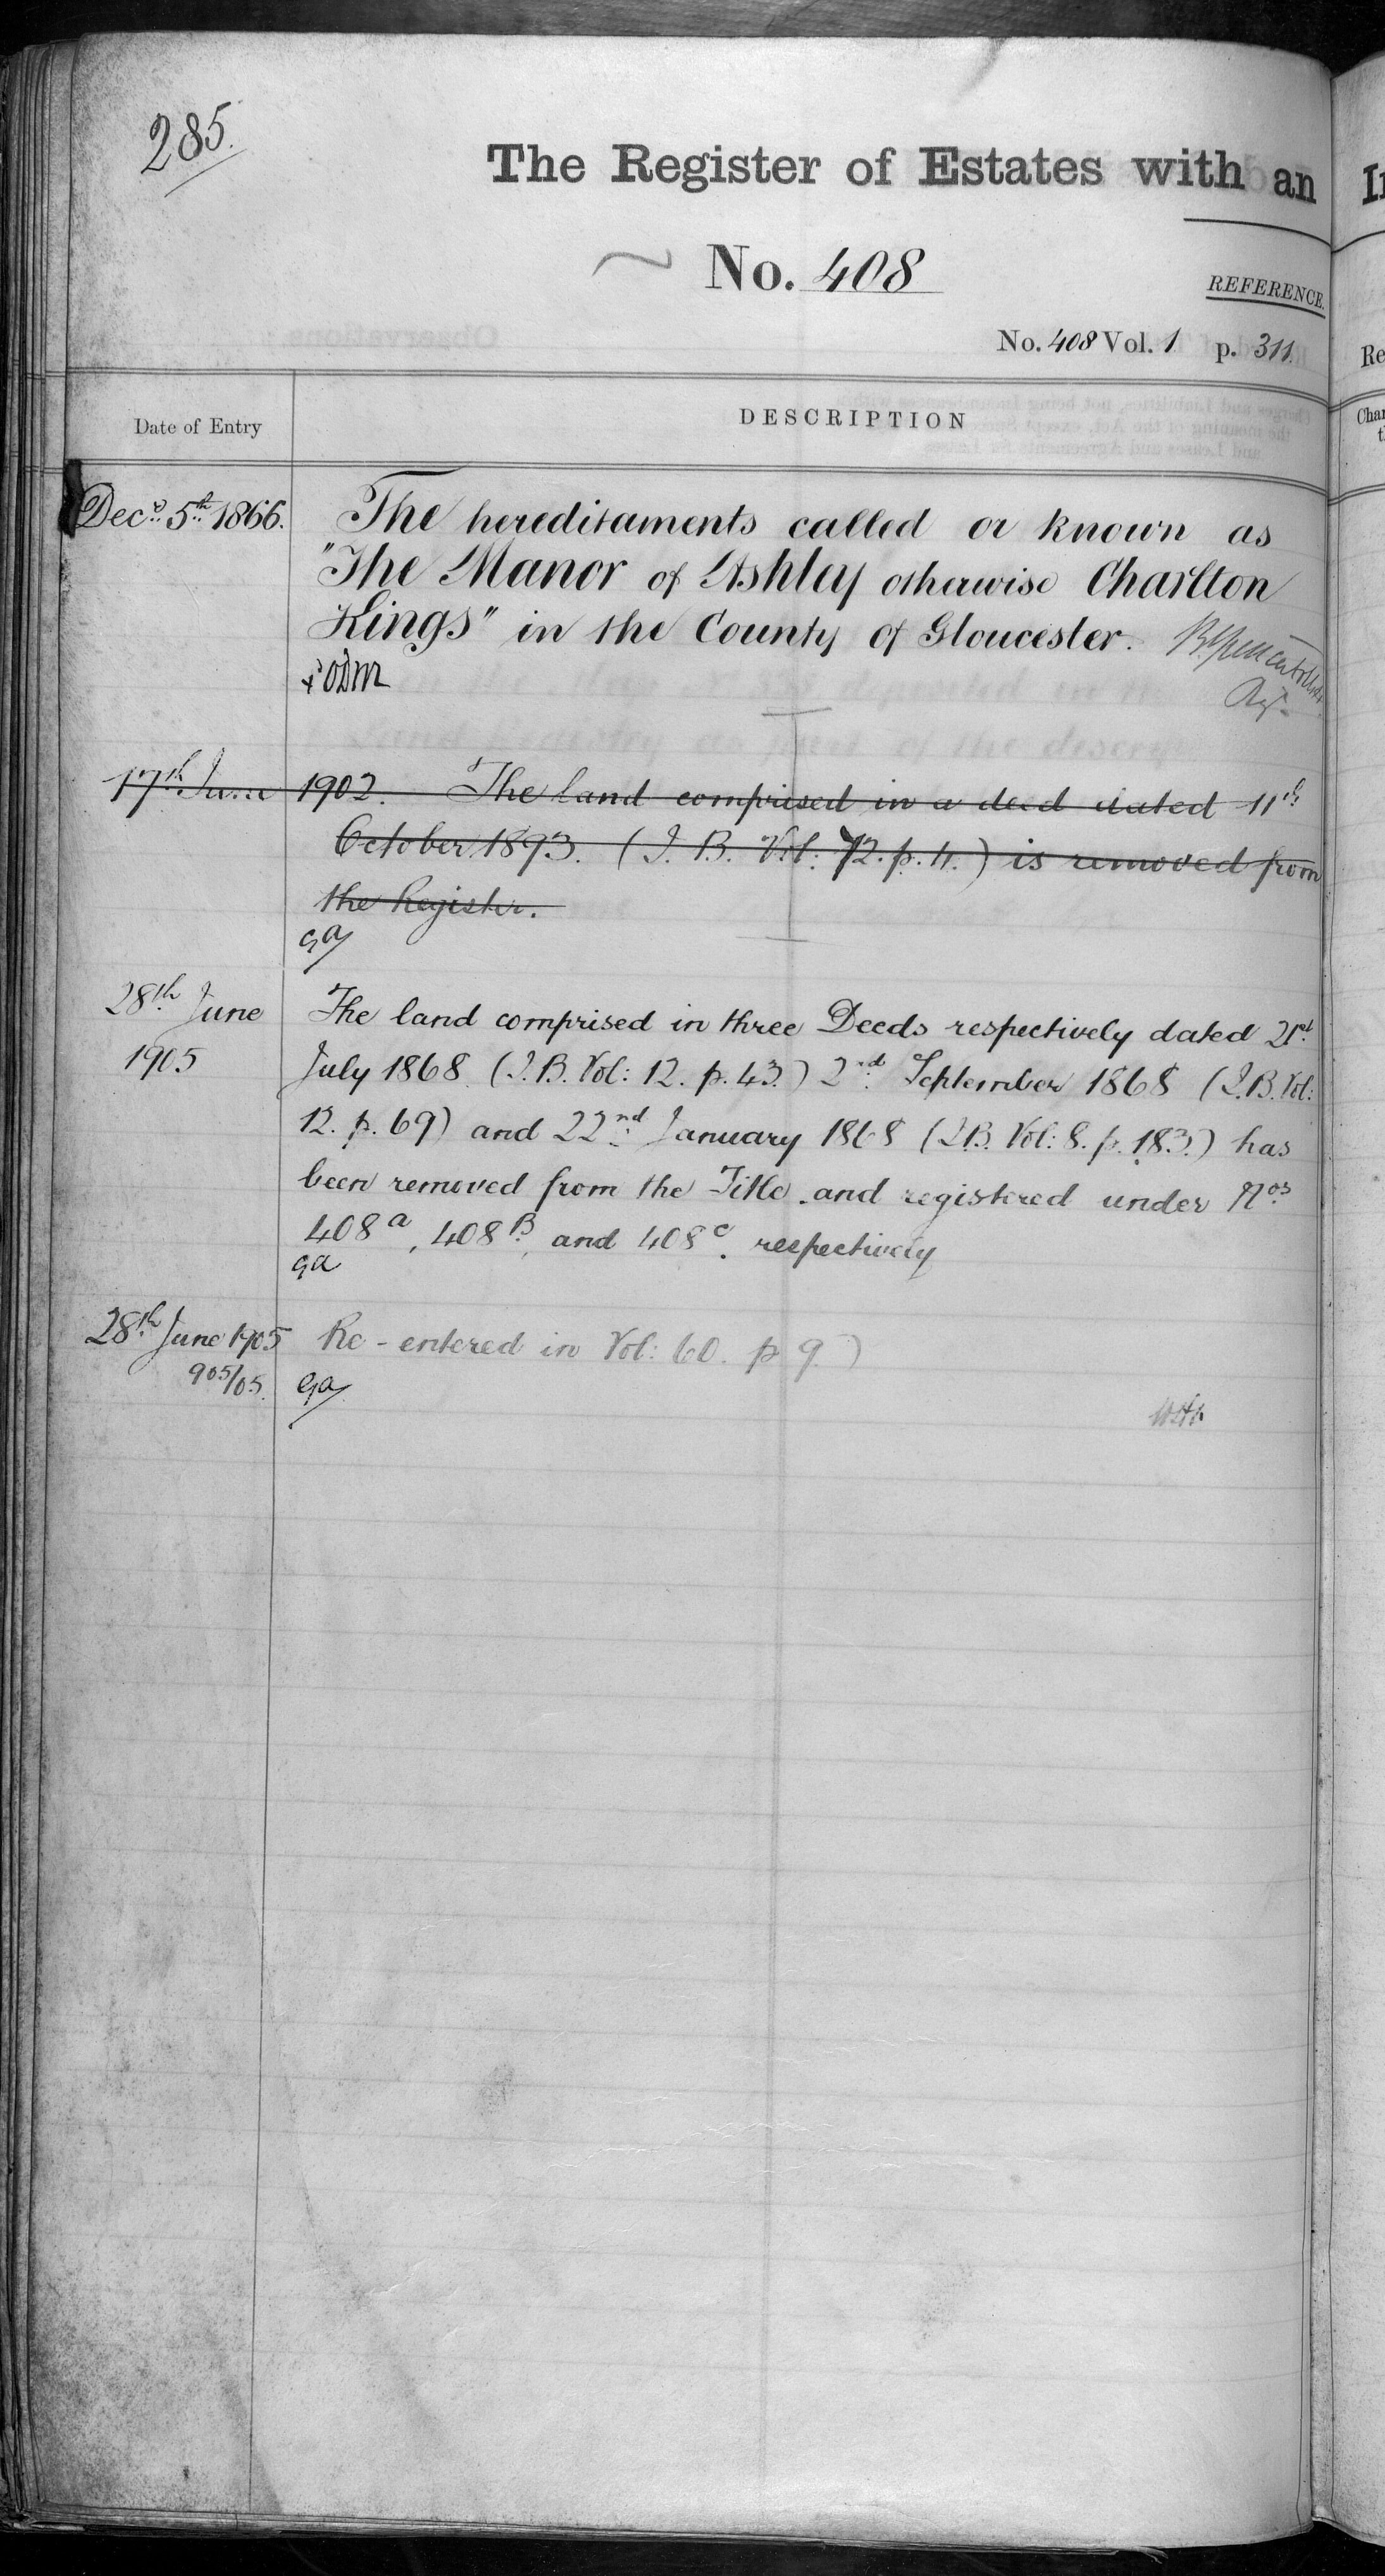 285.
The Register of Estates with an
No. 408
REFERENCE.
No. 408 Vol. 1 p. 311.
Date of Entry
DESCRIPTION
Decr. 5th 1866.
The hereditaments called or known as
"The Manor of Ashley otherwise Charlton
Kings" in the County of Gloucester.
17th June 1902. The land comprised in a deed dated 11th
October 1893. (I. B. Vol: 72. p. 4.) is removed from
the Register.
ga
28th June
1905
The land comprised in three Deeds respectively dated 21st
July 1868 (I.B. Vol: 12. p. 43.) 2nd September 1868 (I.B. Vol:
12. p. 69) and 22nd January 1868 (I.B. Vol: 8. p. 183.) has
been removed from the Title and registered under Nos
408a, 408B, and 408c. respectively
ga
28th June 1905
905/05.
Re-entered in Vol: 60. p 9)
ga